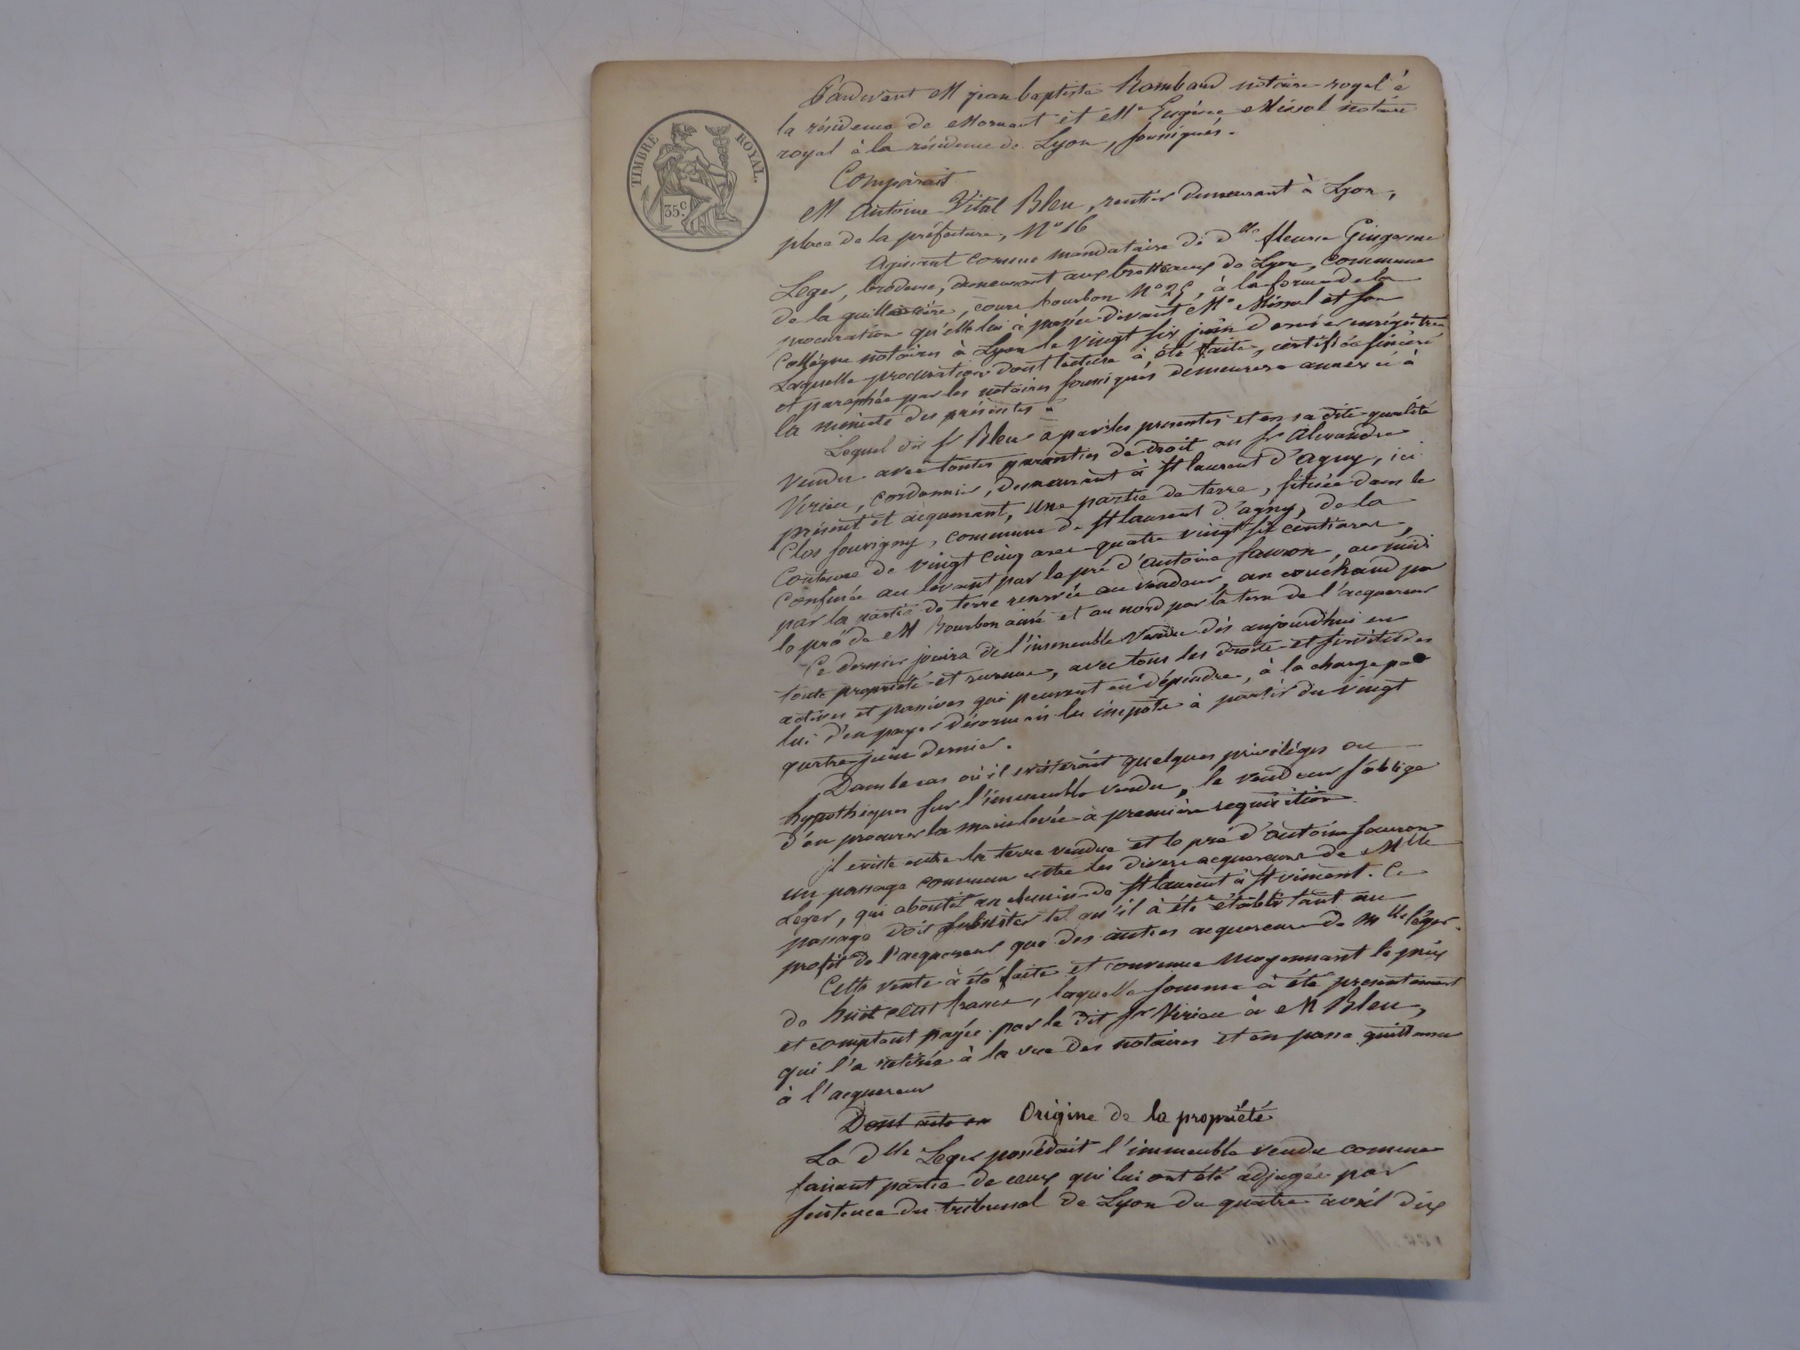 TIMBRE ROYAL.
35 c.
Pardevant M jean baptiste Rambaud notaire royal à
la résidence de Mornant et Me Eugène Missol notaire
royal à la résidence de Lyon, soussignés.
Comparait
M Antoine Vital Bleu, rentier demeurant à Lyon,
place de la préfecture, No 16
Agissant comme mandataire de dlle fleurie
Leger, brodeuse, demeurant aux brotteaux de Lyon, commune
de la guillotière, cours bourbon No 25, à la forme de la
procuration qu'elle lui à passée devant Me Missol et son
collégue notaires à Lyon le vingt six juin dernier enrégistrée
Laquelle procuration dont lecture à été faite, certifiée sincère
et paraphée par les notaires soussignés demeurera annexée à
la minute des présentes.
Lequel dit sr Bleu a par les presentes et en sa dite qualité
vendu avec toutes garanties de droit au sr Alexandre
Virieu, cordonnier, demeurant à St laurent d'agny, ici
présent et acquerant, une partie de terre, située dans le
Clos souvigny, commune de St laurent d'agny, de la
Contenue de vingt cinq ares quatre vingt six centiares,
Confinée au levant par le pré d'antoine fauron, au midi
par la partie de terre reservée au vendeur, au couchant par
le pré de M Bourbon ainé et au nord par la terre de l'acquereur
Ce dernier jouira de l'immeuble vendu dès aujourd'hui en
toute propriété et revenu, avec tous les droits et servitudes
actives et passives qui peuvent en dépendre, à la charge par
lui d'en payer désormais les impôts à partir du vingt
quatre juin dernier.
Dans le cas où il existerait quelques priviléges ou
hypothèques sur l'immeuble vendu, le vendeur s'oblige
d'en procurer la main levée à première requisition.
Il existe entre la terre vendue et le pré d'antoine fauron
un passage commun entre les divers acquereurs de Mlle
Leger, qui aboutit au chemin de St laurent à St vincent. Ce
passage doit subsister tel qu'il à été établi tant au
profit de l'acquereur que des autres acquereurs de Mlle léger.
Cette vente à été faite et convenue moyennant le prix
de huit cent francs, laquelle somme à été presentement
et comptant payée par le dit sr Virieu à M Bleu,
qui l'a retirée à la vue des notaires et en passe quittance
à l'acquereur
Dont acte en Origine de la propriété
La dlle Leger possédait l'immeuble vendu comme
faisant partie de ceux qui lui ont été adjugés par
sentence du tribunal de Lyon du quatre avril dix